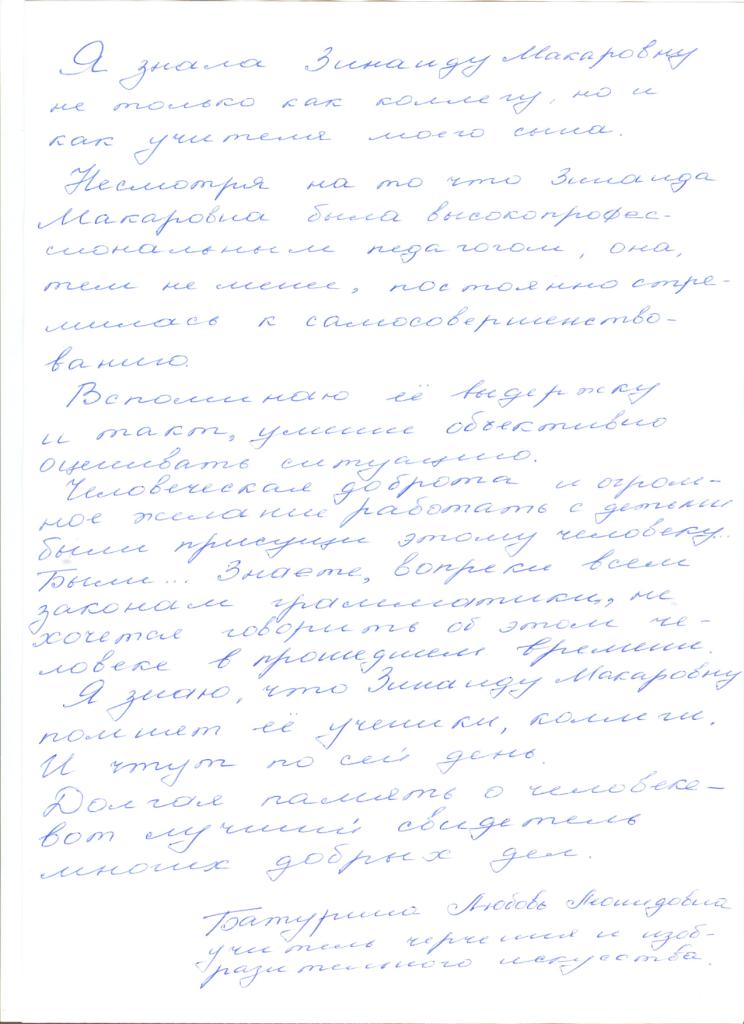 Я знала Зинаиду Макаровну
не только как коллегу, но и
как учителя моего сына.
Несмотря на то что Зинаида
Макаровна была высокопрофес-
сиональным педагогом, она,
тем не менее, постоянно стре-
милась к самосовершенство-
ванию.
Вспоминаю её выдержку
и такт, умение объективно
оценивать ситуацию.
Человеческая доброта и огром-
ное желание работать с детьми
были присущи этому человеку...
Были... Знаете, вопреки всем
законам грамматики, не
хочется говорить об этом че-
ловеке в прошедшем времени.
Я знаю, что Зинаиду Макаровну
помнят её ученики, коллеги.
И чтут по сей день.
Долгая память о человеке –
вот лучший свидетель
многих добрых дел.
Батурина Любовь Леонидовна
учитель черчения и изоб-
разительного искусства.